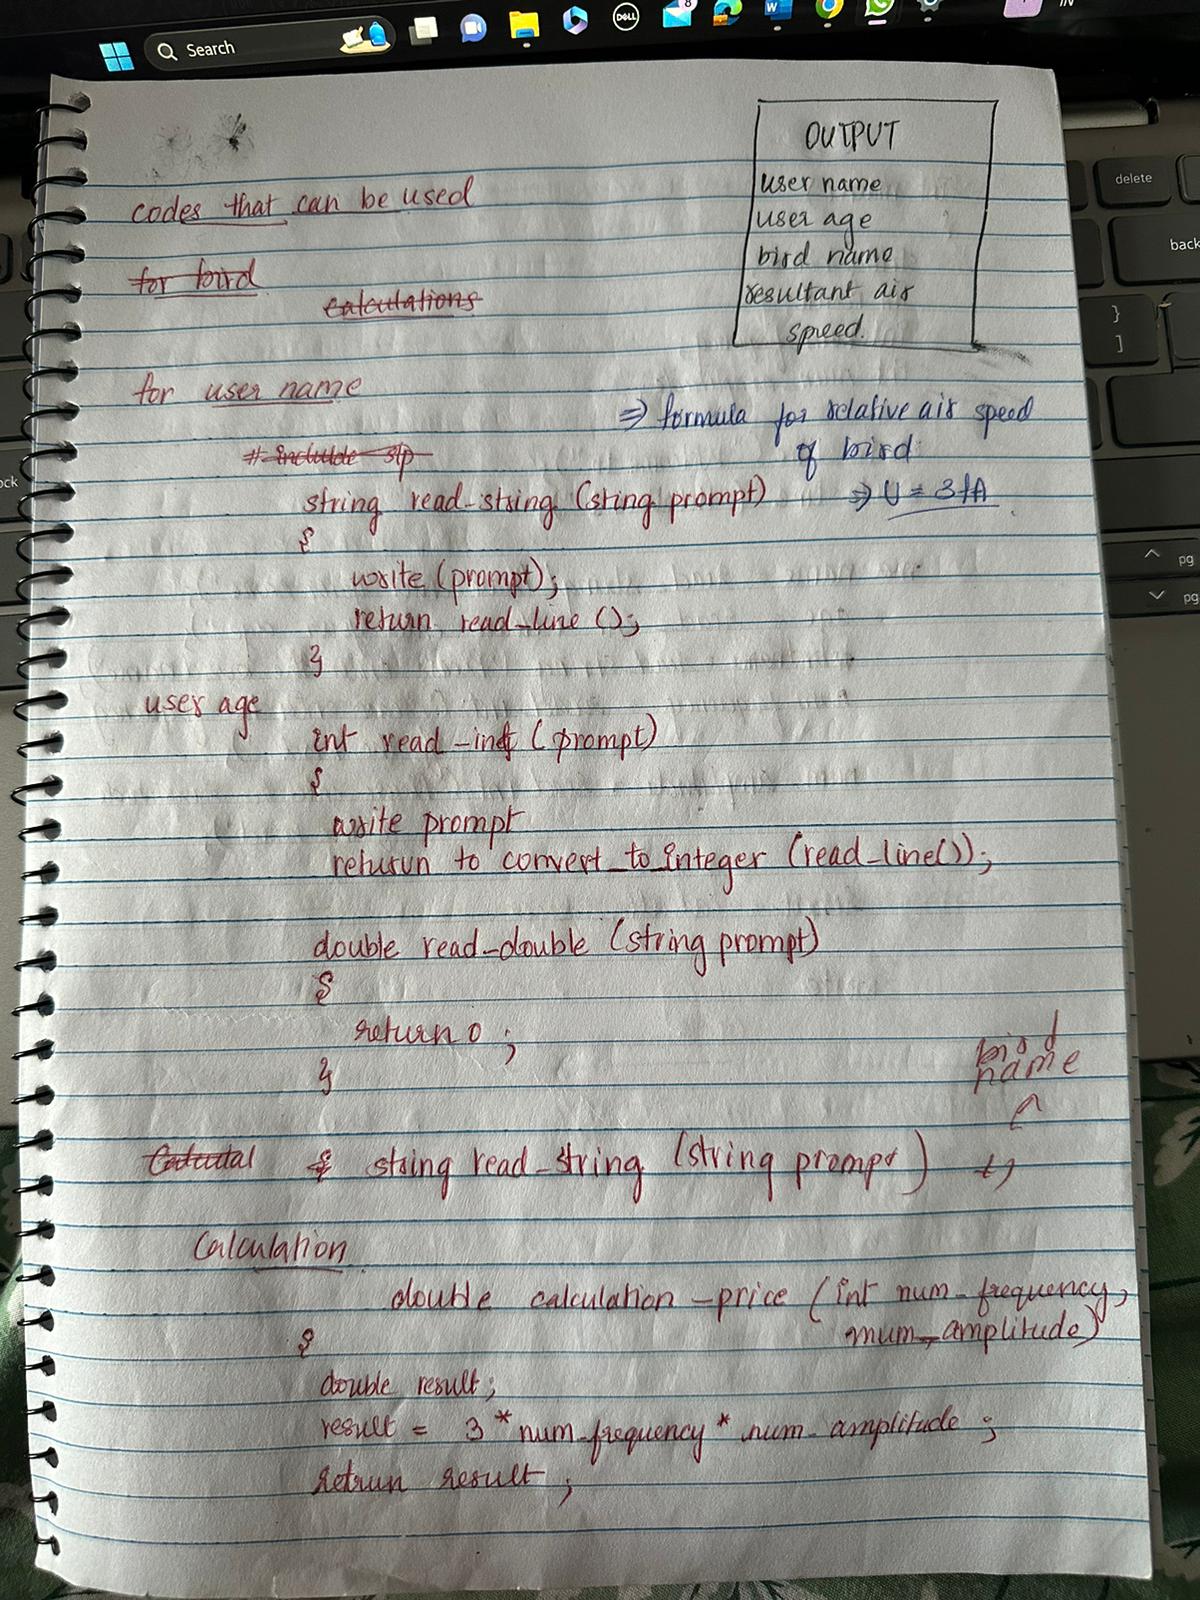 Search
DELL
8
W
IN
delete
back
}
]
ock
pg
pg
OUTPUT
user name
user age
bird name
resultant air
speed.
codes that can be used
for bird
calculations
for user name
⇒ formula for relative air speed
of bird
⇒ U = 3fA
# include
string read-string (sting prompt)
{
write (prompt);
return read-line ();
}
user age
int read-int (prompt)
{
write prompt
returun to convert_to_integer (read-line());
double read-double (string prompt)
{
return 0 ;
}
bird
name
string read-string (string prompt)
Calculation
double calculation-price (int num-frequency,
num-amplitude)
{
double result;
result = 3 * num-frequency * num-amplitude ;
retrun result ;